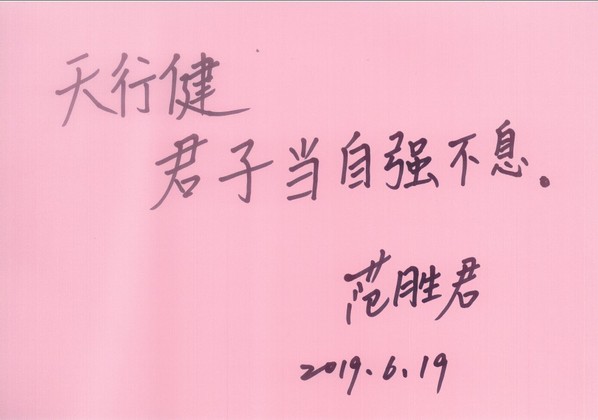 天行健
君子当自强不息.
范胜君
2019.6.19